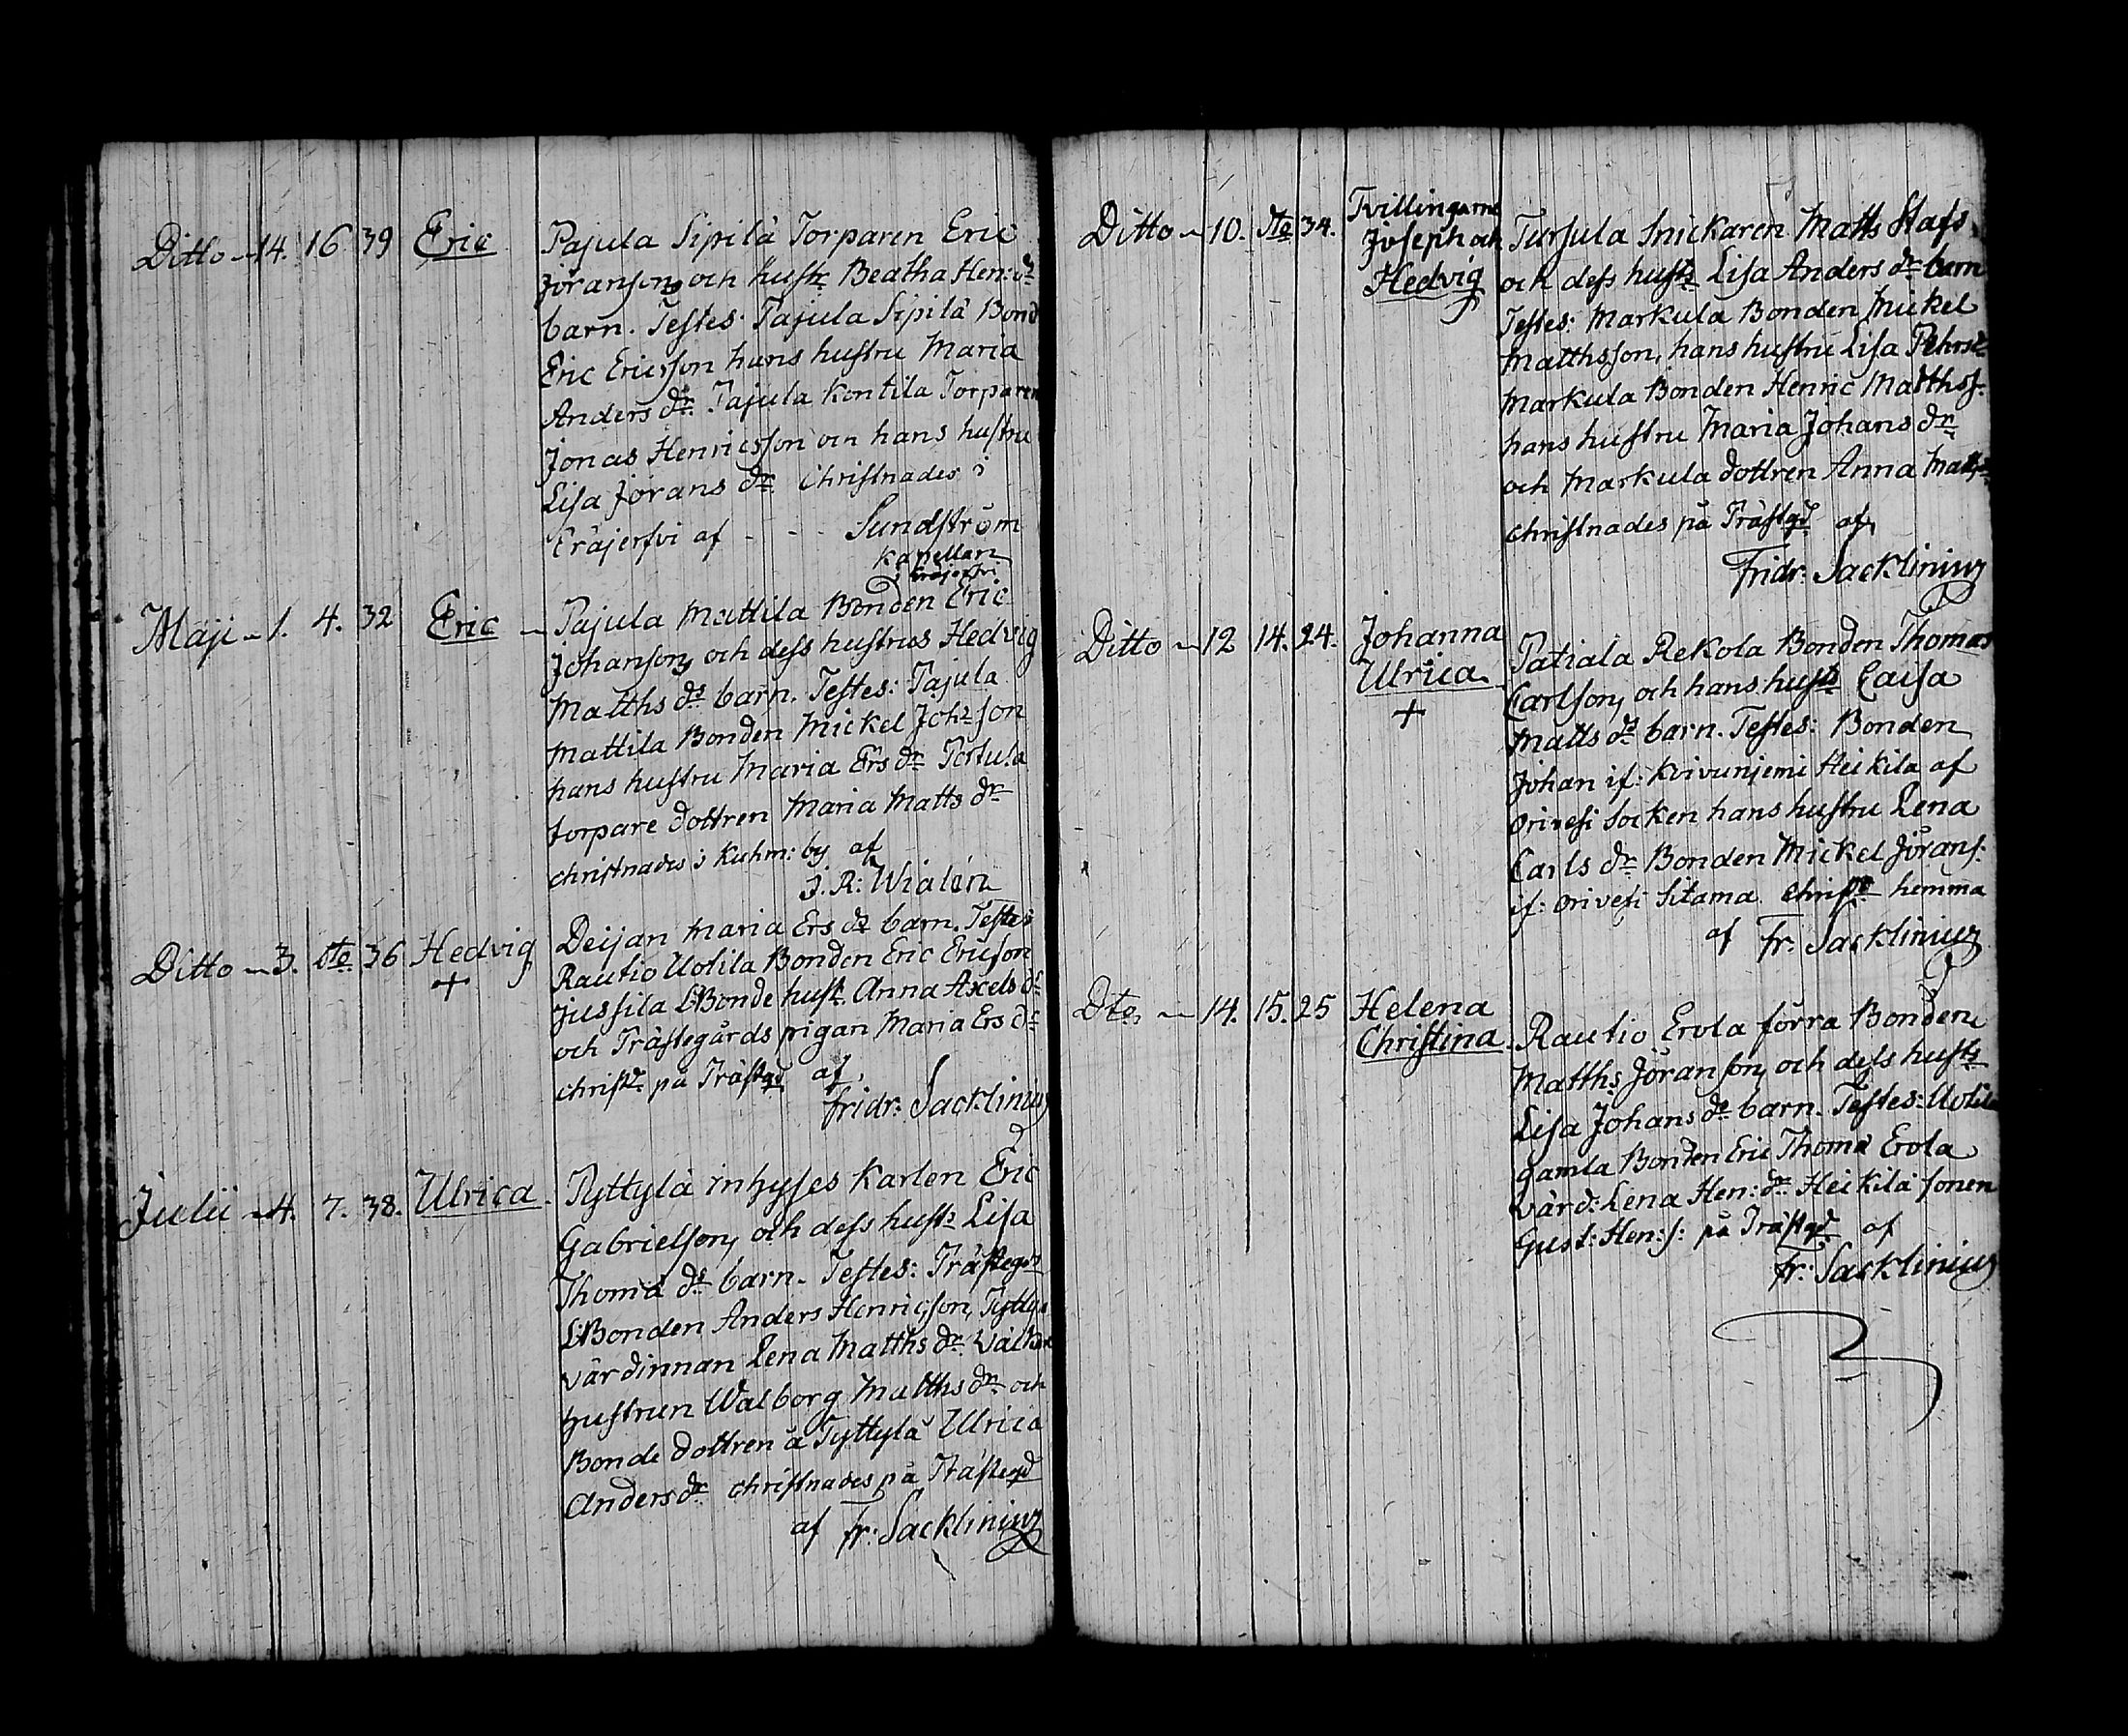 Ditto - 14. 16 39 Eric Pajula Sipilä Torparen Eric
Jöranson och hustr Beatha Hen: dr
barn. Testes. Pajula Sipilä Bond
Eric Ericsson hans hustru Maria
Anders dr. Pajula Kontila Torparen
Jonas Henricsson och hans hustru
Lisa Jörans dr. Christnades i
Eräjerfvi af - - - Sundström
Kapellan
i Eräjerfvi
Maji - 1. 4. 32 Eric - Pajula Mattila Bonden Eric
Johanson och dess hustrus Hedvig
Matths dr barn. Testes: Pajula
Mattila Bonden Mickel Joh: son
hans hustru Maria Ers dr
torpare dottren Maria Matts dr
christnades i Kuhm: by af
J. R: Wialén
Ditto - 3. dto 36 Hedvig Deijan Maria Ers dr barn. Testes
+ Rautio Uotila Bonden Eric Ericson
Jussila LBonde hust. Anna Axels dr
och Prästegårds pigan Maria Ers dr
christd. på Prästgd af
Fridr: Sacklinius
Julii - 4. 7. 38. Ulrica. Pyttylä inhyses Karlen Eric
Gabrielson, och dess hust: Lisa
Thoma dr barn. Testes: Prästegd
LBonden Anders Henricson,
värdinnan Lena Matths dr
hustrun Walborg Matths dr och
Bonde dottren å Pyttylä Ulrica
Anders dr christnades på Prästegd
af Fr: Sacklinius
Ditto - 10. dto 34. Tvillingarne
Joseph och
Hedvig
Tursula Snickaren Matts Stafs.
och dess hustr Lisa Anders dr barn
Testes: Markula Bonden Mickel
Matthsson, hans hustru Lisa Pehrs dr
Markula Bonden Henric Matthss:
hans hustru Maria Johans dr
och Markula dottren Anna
christnades på Prästgd af
Fridr: Sacklinius
Ditto - 12 14. 24. Johanna
Ulrica
+
Patiala Rekola Bonden Thomas
Carlson, och hans hustr Caisa
Matts dr barn. Testes: Bonden
Johan if: Koivunjemi Heikila af
Orivesi Socken hans hustru Lena
Carls dr Bonden Mickel Jörans:
if: Orivesi Sitama christd hemma
af Fr: Sacklinius
Dto - 14. 15. 25 Helena
Christina.
Rautio Erola förra Bonden
Matths Jöranson och dess hustr
Lisa Johans dr barn. Testes: Uotila
gamla Bonden Eric Thoma Erola
värd: Lena Hen: dr Heikilä sonen
Gust: Hen: s: på Prästgd af
Fr: Sacklinius